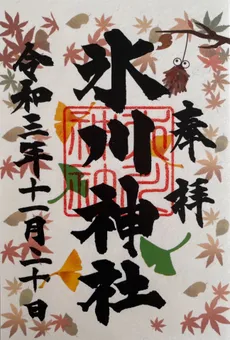 奉拝
氷川神社
令和三年十一月二十日